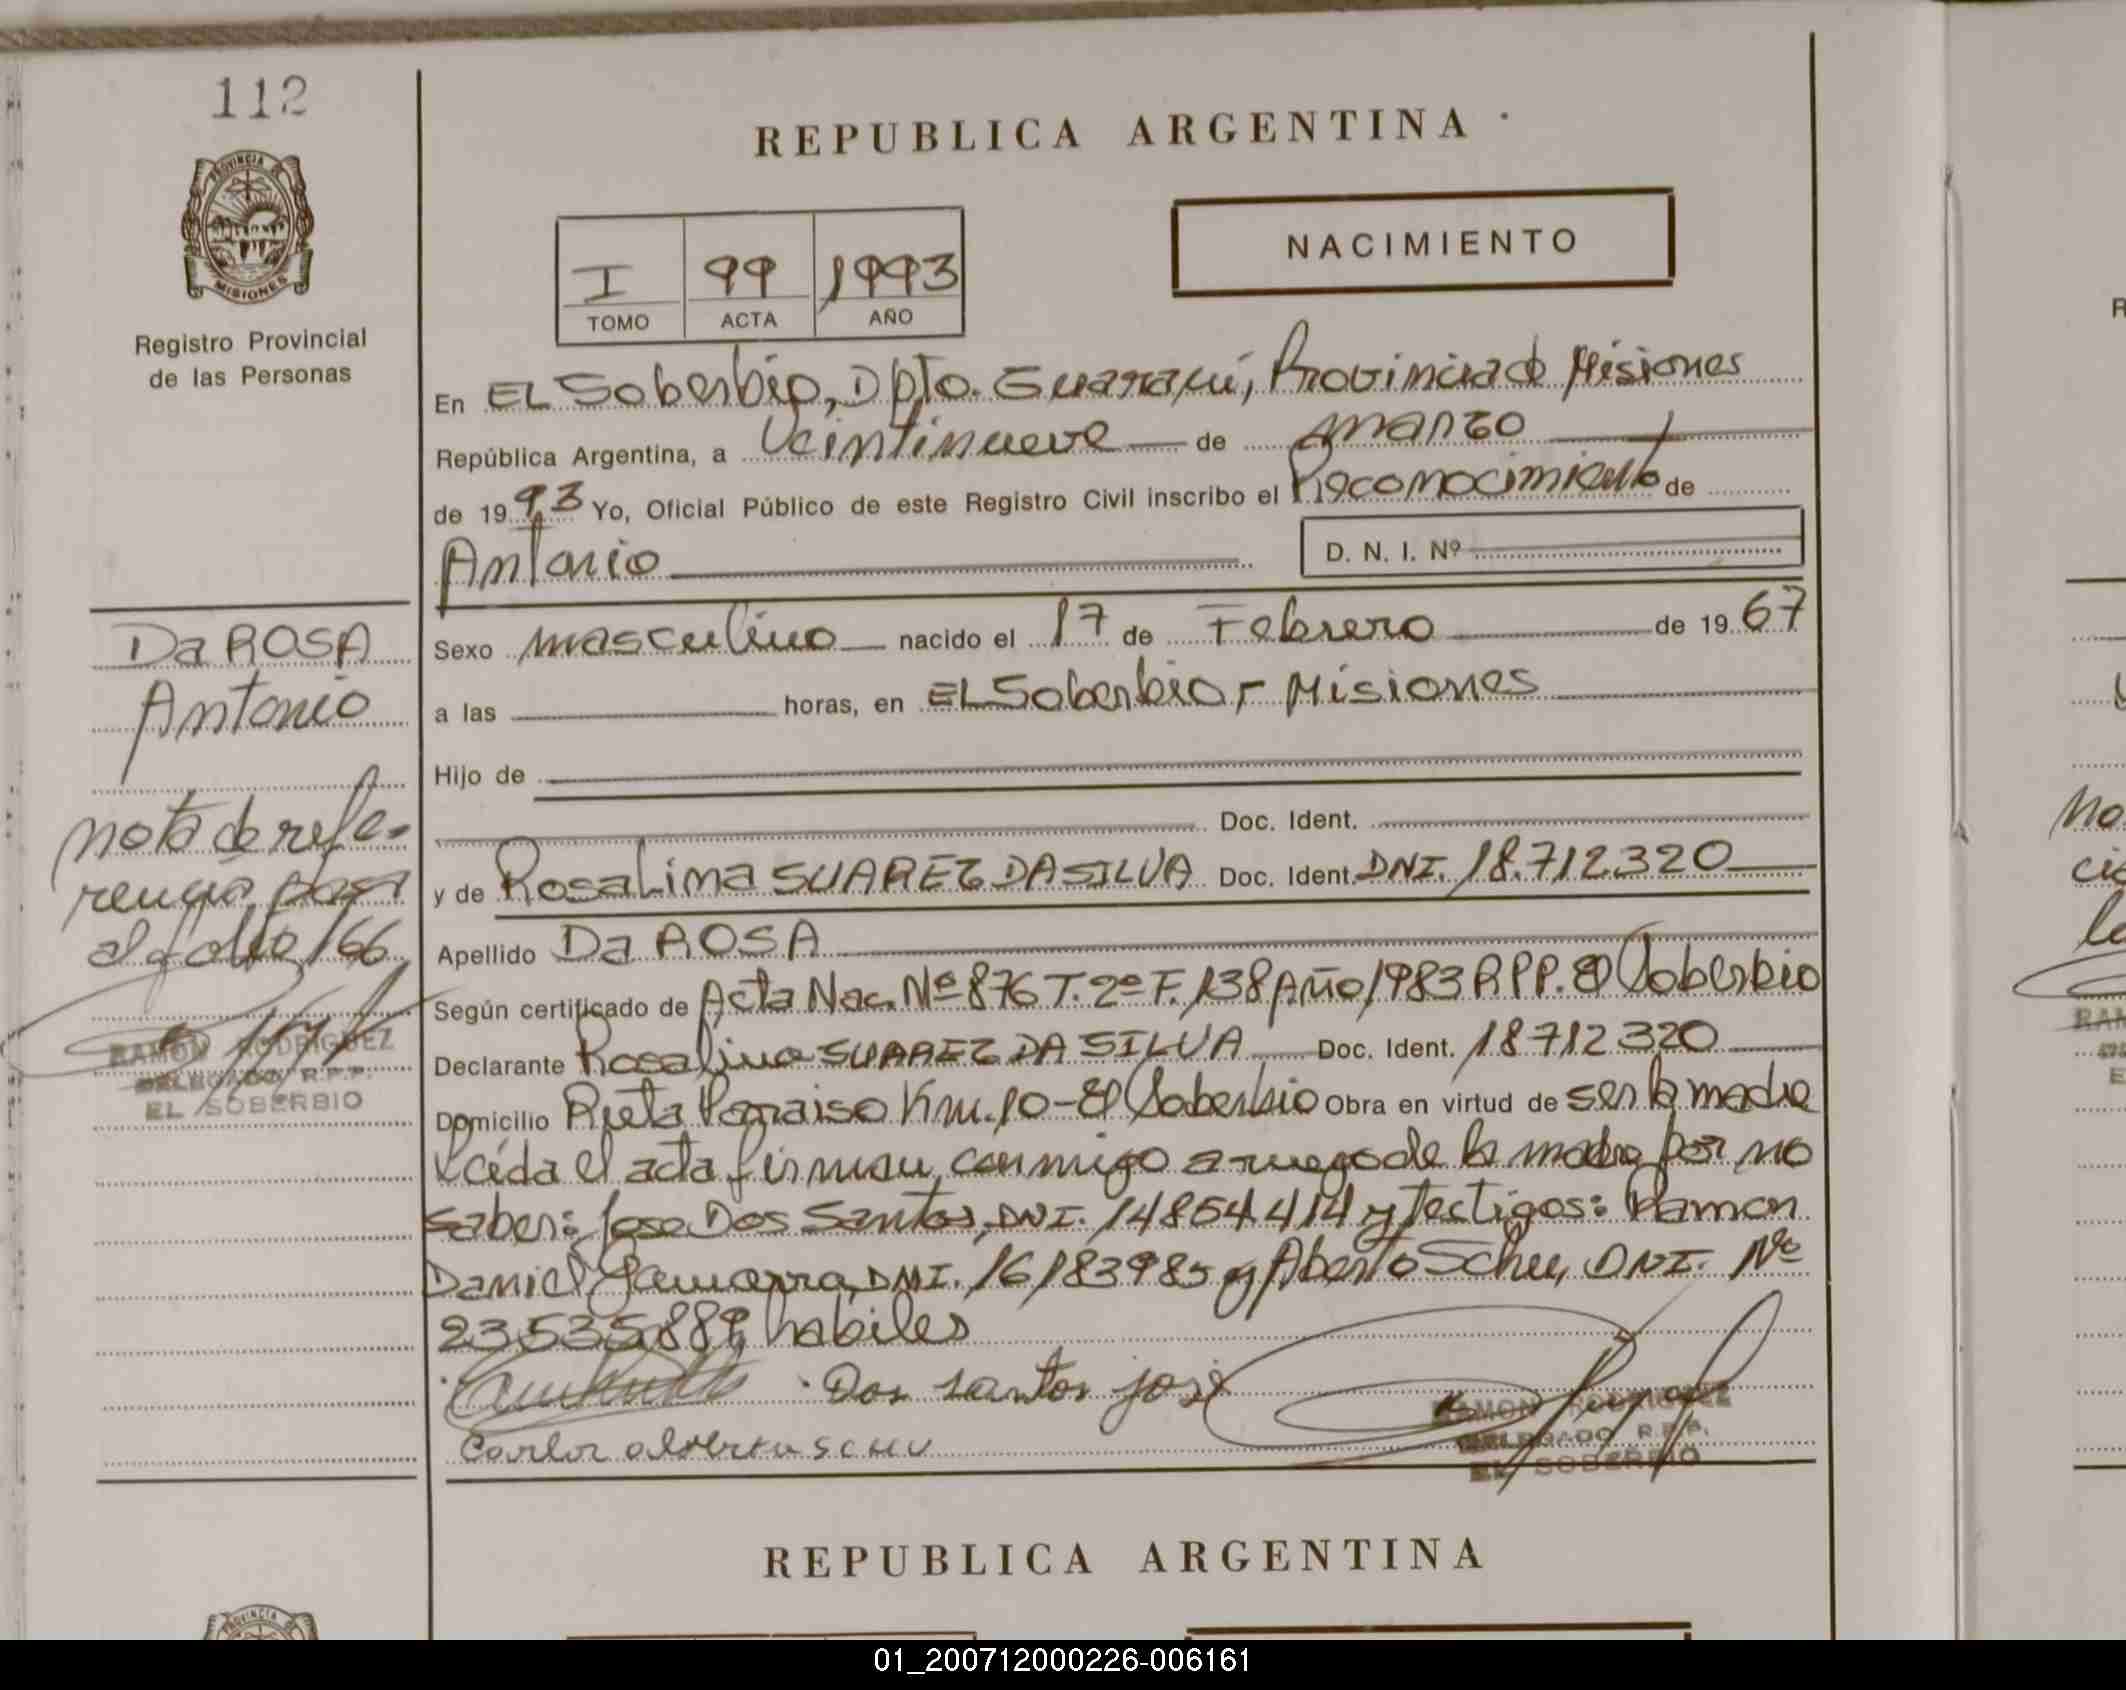 112
PROVINCIA DE
MISIONES
Registro Provincial
de las Personas
REPUBLICA ARGENTINA
NACIMIENTO
I 99 1993
TOMO ACTA AÑO
En EL Soberbio, Dpto. Guarani, Provincia de Misiones
República Argentina, a Veintinueve de marzo
de 1993 Yo, Oficial Público de este Registro Civil inscribo el Reconocimiento de
Antonio
D. N. I. Nº
Sexo masculino nacido el 17 de Febrero de 1967
a las horas, en EL Soberbio, - Misiones
Hijo de
Doc. Ident.
y de Rosalima SUAREZ DA SILVA Doc. Ident. DNI. 18.712.320
Apellido Da ROSA
Según certificado de Acta Nac. Nº 876 T. 2º F. 138 Año 1983 RPP. El Soberbio
Declarante Rosalina SUAREZ DA SILVA Doc. Ident. 18712320
Domicilio Ruta Paraiso Km. 10 - El Soberbio Obra en virtud de ser la madre
Leida el acta firman conmigo a ruego de la madre por no
saber: Jose Dos Santos, DNI. 14854414 y Testigos: Ramon
Daniel Gamarra, DNI. 16183985 y Aberto Schu, DNI. Nº
23535889, habiles
Dos santos josé
Carlos alberto SCHU
RAMON RODRIGUEZ
DELEGADO R.P.P.
EL SOBERBIO
Da ROSA
Antonio
nota de refe-
rencia pasa
al folio 166
RAMON RODRIGUEZ
DELEGADO R.P.P.
EL SOBERBIO
REPUBLICA ARGENTINA
PROVINCIA DE
01_200712000226-006161